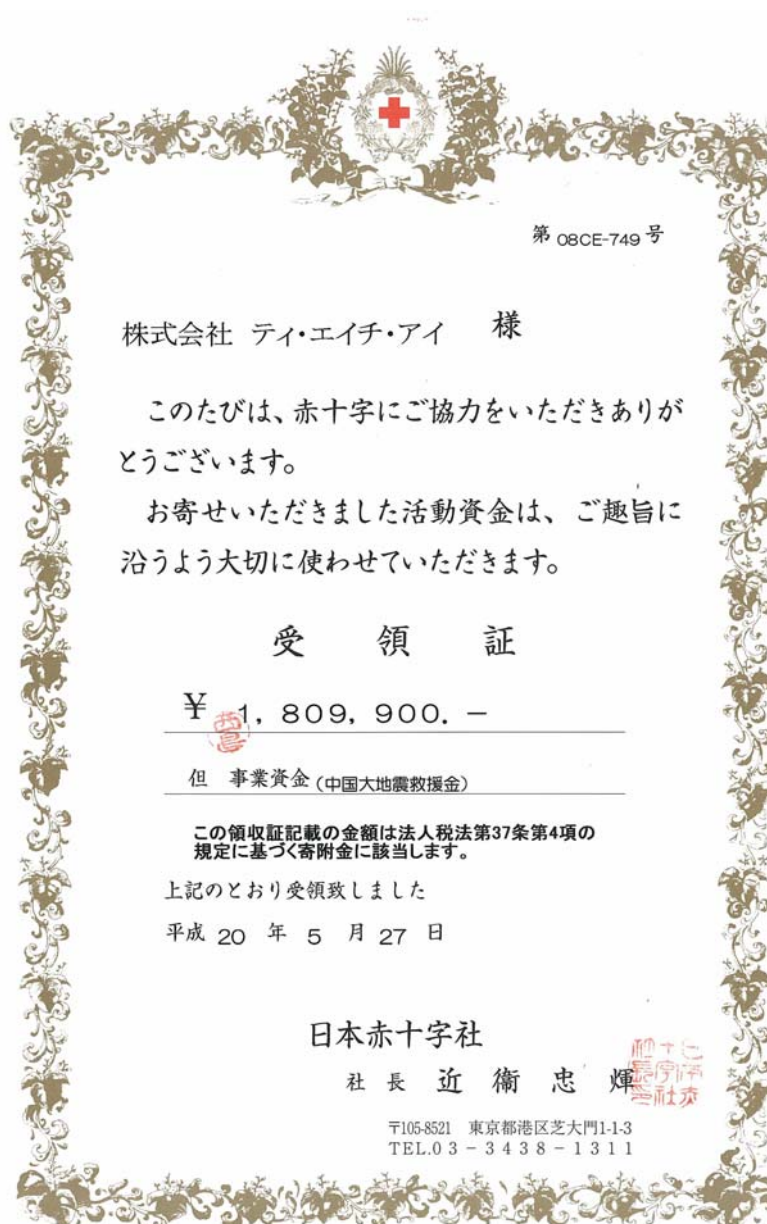 第 08CE-749 号
株式会社 ティ・エイチ・アイ 様
このたびは、赤十字にご協力をいただきありが
とうございます。
お寄せいただきました活動資金は、ご趣旨に
沿うよう大切に使わせていただきます。
受 領 証
¥ 1, 809, 900. −
但 事業資金 (中国大地震救援金)
この領収証記載の金額は法人税法第37条第4項の
規定に基づく寄附金に該当します。
上記のとおり受領致しました
平成 20 年 5 月 27 日
日本赤十字社
社 長 近 衞 忠 煇
〒105-8521 東京都港区芝大門1-1-3
TEL.03−3438−1311